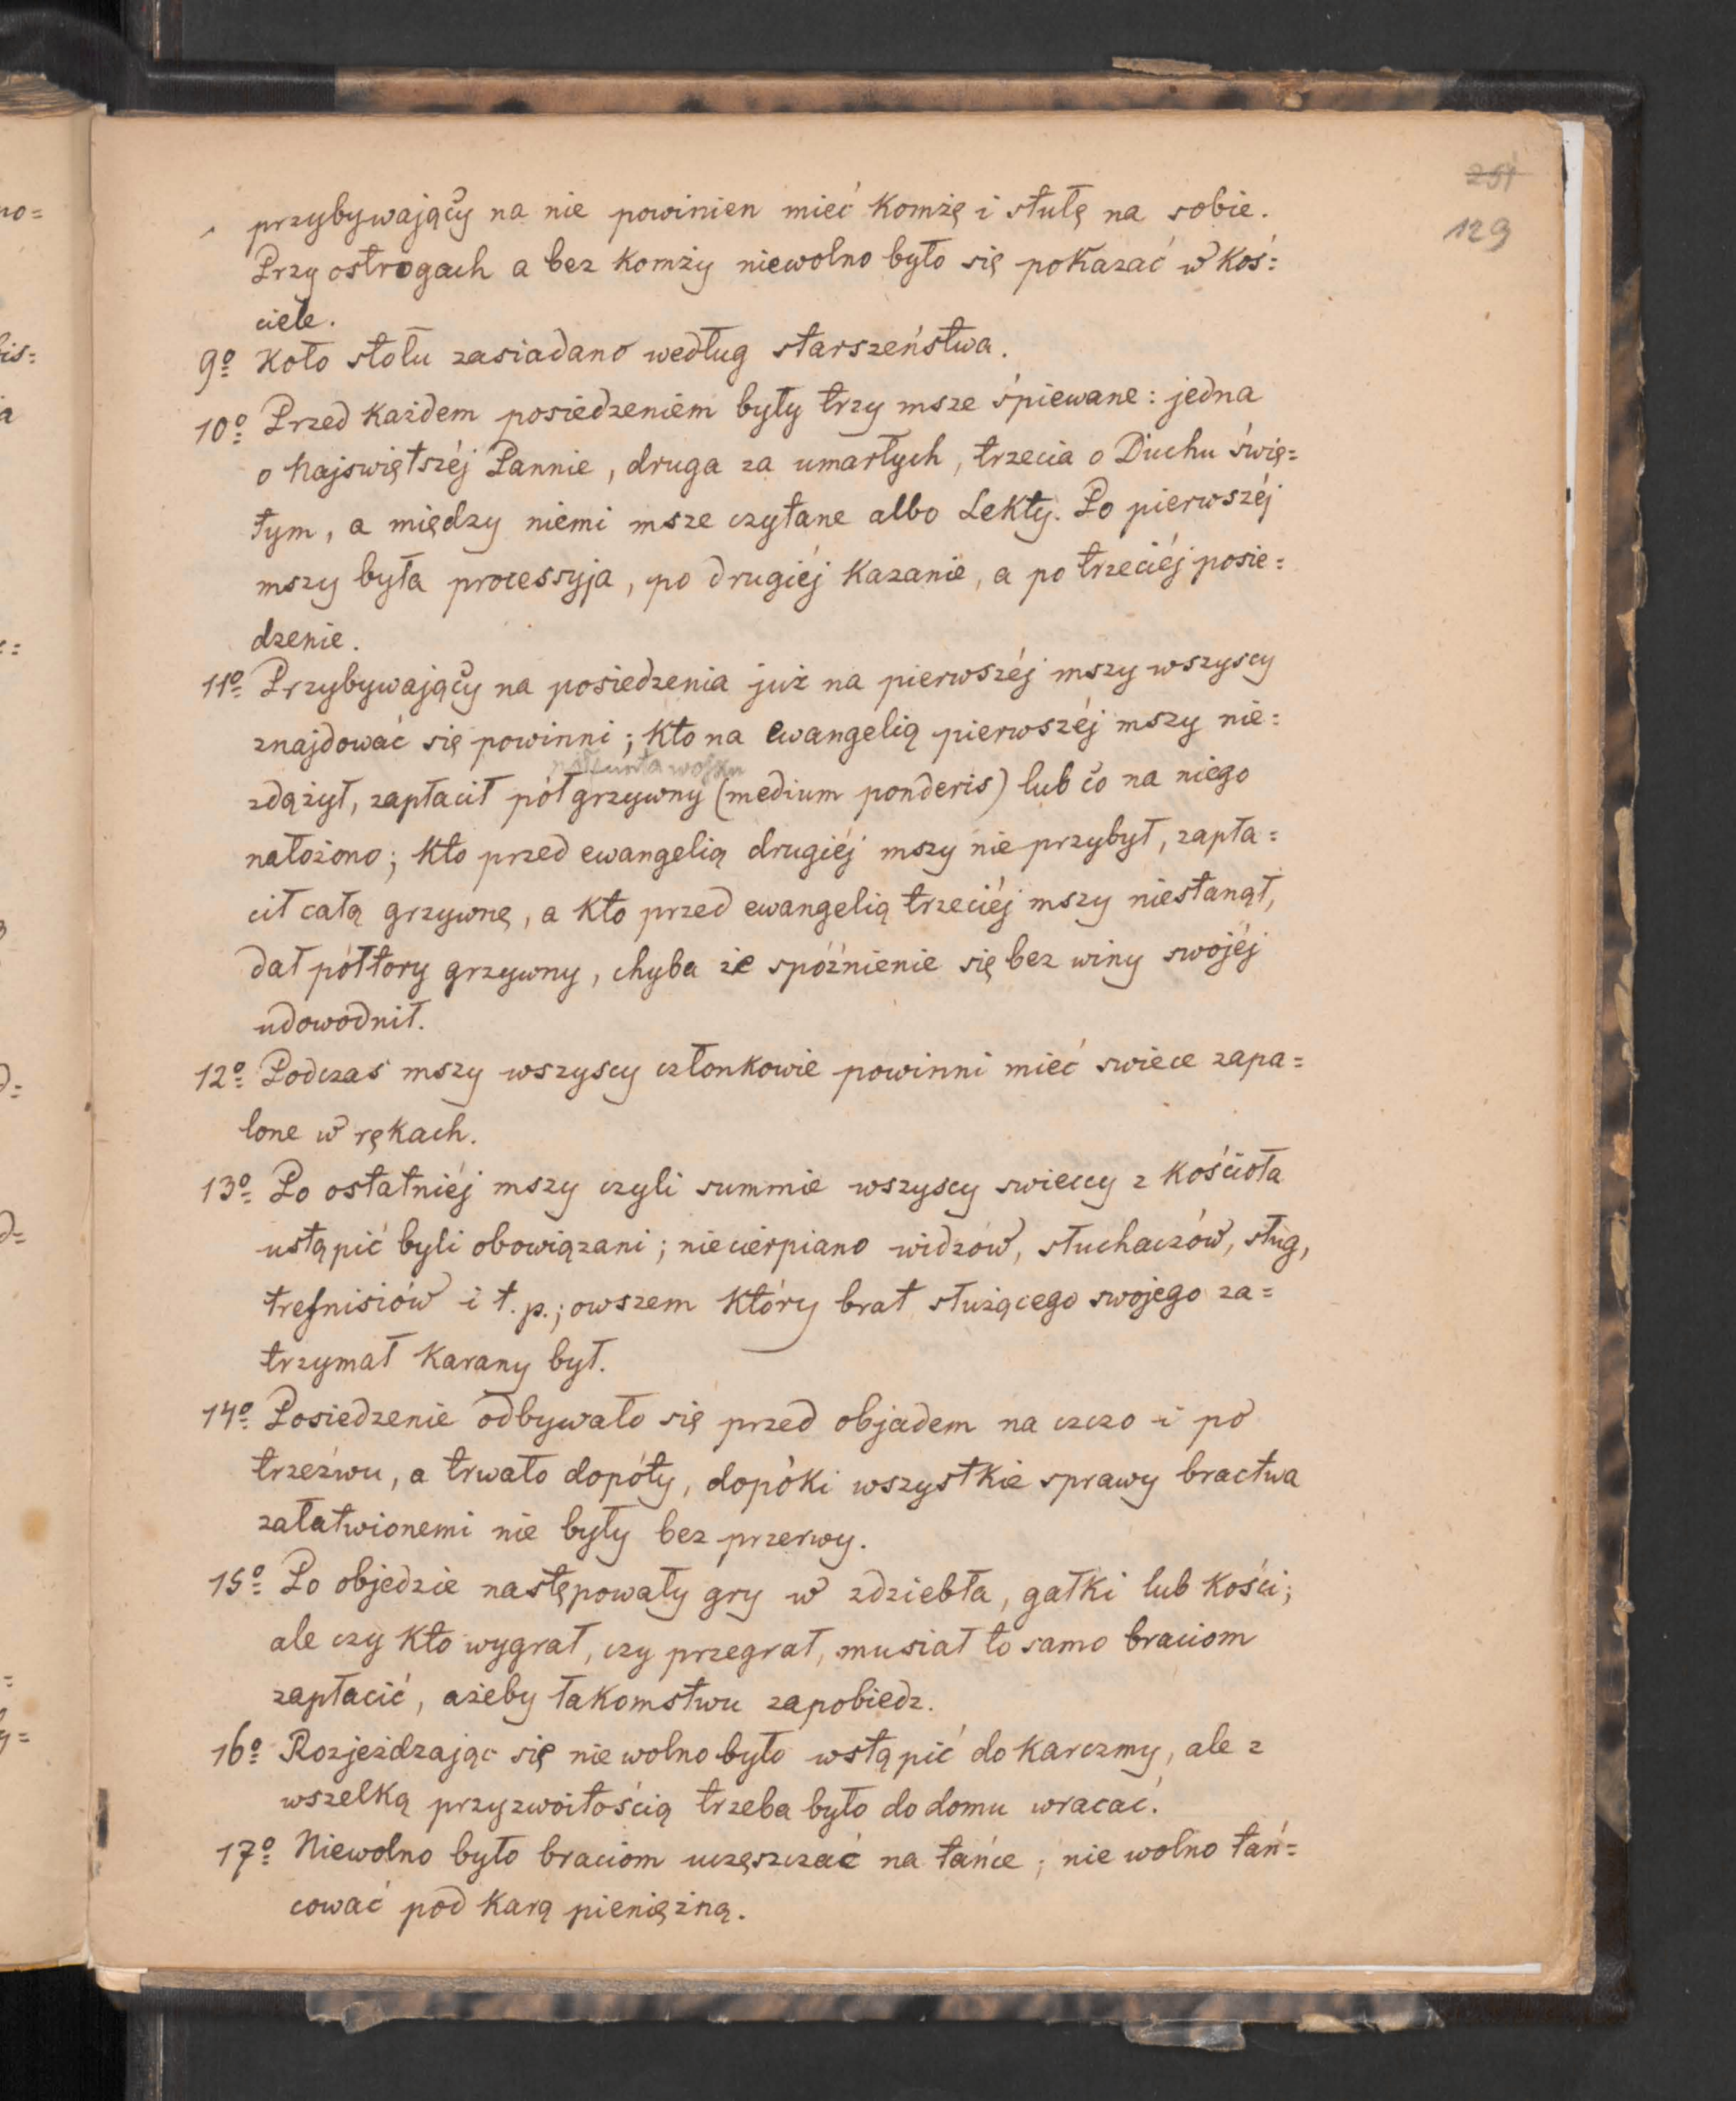 251
129
przybywający na nie powinien mieć komżę i stułę na sobie.
Przy ostrogach a bez komży niewolno było się pokazać w koś=
ciele.
9o Koło stołu zasiadano według starszeństwa.
10o Przed każdem posiedzeniem były trzy msze śpiewane: jedna
o Najświętszéj Pannie, druga za umarłych, trzecia o Duchu świę=
tym, a między niemi msze czytane albo Lekty. Po pierwszéj
mszy była processyja, po drugiéj kazanie, a po trzeciéj posie=
dzenie.
11o Przybywający na posiedzenia już na pierwszéj mszy wszyscy
znajdować się powinni; kto na ewangelią pierwszéj mszy nie=
pół funta wosku
zdążył, zapłacił pół grzywny (medium ponderis) lub co na niego
nałożono; kto przed ewangelią drugiéj mszy nie przybył, zapła=
cił całą grzywnę, a kto przed ewangelią trzeciéj mszy niestanął,
dał półtory grzywny, chyba że spóźnienie się bez winy swojéj
udowodnił.
12o Podczas mszy wszyscy członkowie powinni mieć swiece zapa=
lone w rękach.
13o Po ostatniéj mszy czyli summie wszyscy swieccy z kościoła
ustąpić byli obowiązani; niecierpiano widzów, słuchaczów, sług,
trefnisiów i t. p.; owszem który brat służącego swojego za=
trzymał karany był.
14o Posiedzenie odbywało się przed objadem na czczo i po
trzeźwu, a trwało dopóty, dopóki wszystkie sprawy bractwa
załatwionemi nie były bez przerwy.
15o Po objedzie następowały gry w zdziebła, gałki lub kości;
ale czy kto wygrał, czy przegrał, musiał to samo braciom
zapłacić, ażeby łakomstwu zapobiedz.
16o Rozjeżdzając się nie wolno było wstąpić do karczmy, ale z
wszelką przyzwoitością trzeba było do domu wracać.
17o Niewolno było braciom uczęszczać na tańce; nie wolno tań=
cować pod karą pieniężną.